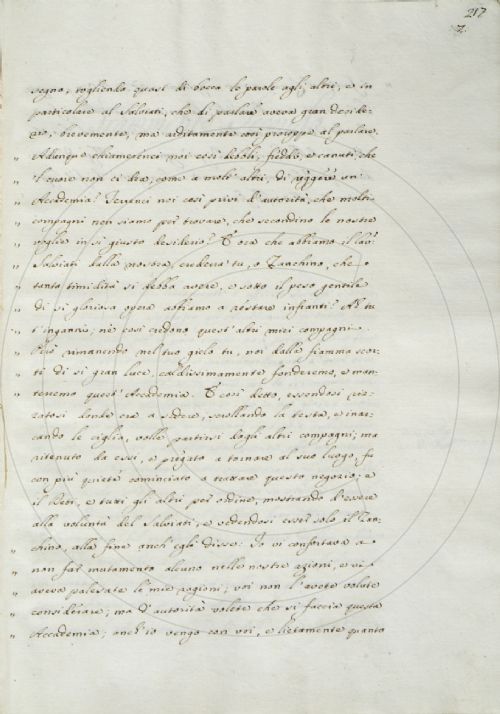 217
2.
segno; togliendo quasi di bocca le parole agli altri, e in
particolare al Salviati, che di parlare aveva gran deside-
rio; brevemente, ma arditamente così proroppe al parlare.
„ Adunque chiameremci noi così debboli, freddi, e canuti, che
„ il cuore non ci dia, come a molt' altri, di reggere un
„ Accademia? Terrenci noi così privi d'autorità, che molti
„ compagni non siamo per trovare, che secondino le nostre
„ voglie in sì giusto desiderio? E ora che abbiamo il
„ Salviati dalla nostra, credevi tu, o Zanchino, che
„ tanta timidità si debba avere, e sotto il peso gentile
„ di sì gloriosa opera abbiamo a restare infranti? Ah tu
„ t'inganni; nè così credono quest' altri miei compagni.
„ Però rimanendo nel tuo gielo tu, noi dalla fiamma scor-
„ ti di sì gran luce, caldissimamente fonderemo, e man-
„ terremo quest' Accademia. E così detto, essendosi riz-
zatosi donde era a sedere, scrollando la testa, e inar-
cando le ciglia, volle partirsi dagli altri compagni; ma
ritenuto da essi, e pregato a tornare al suo luogo, fu
con più quiete cominciato a trattare questo negozio; e
il Beti, e tutti gli altri per ordine, mostrando d'essere
alla voluntà del Salviati, e vedendosi esser solo il Zan-
„ chino, alla fine anch' egli disse: Io vi confortava a
„ non far mutamento alcuno nelle nostre azioni, e vi
„ aveva palesate le mie ragioni; voi non l'avete volute
„ considerare; ma d'autorità volete che si faccia questa
„ Accademia; anch' io vengo con voi, e lietamente quanto